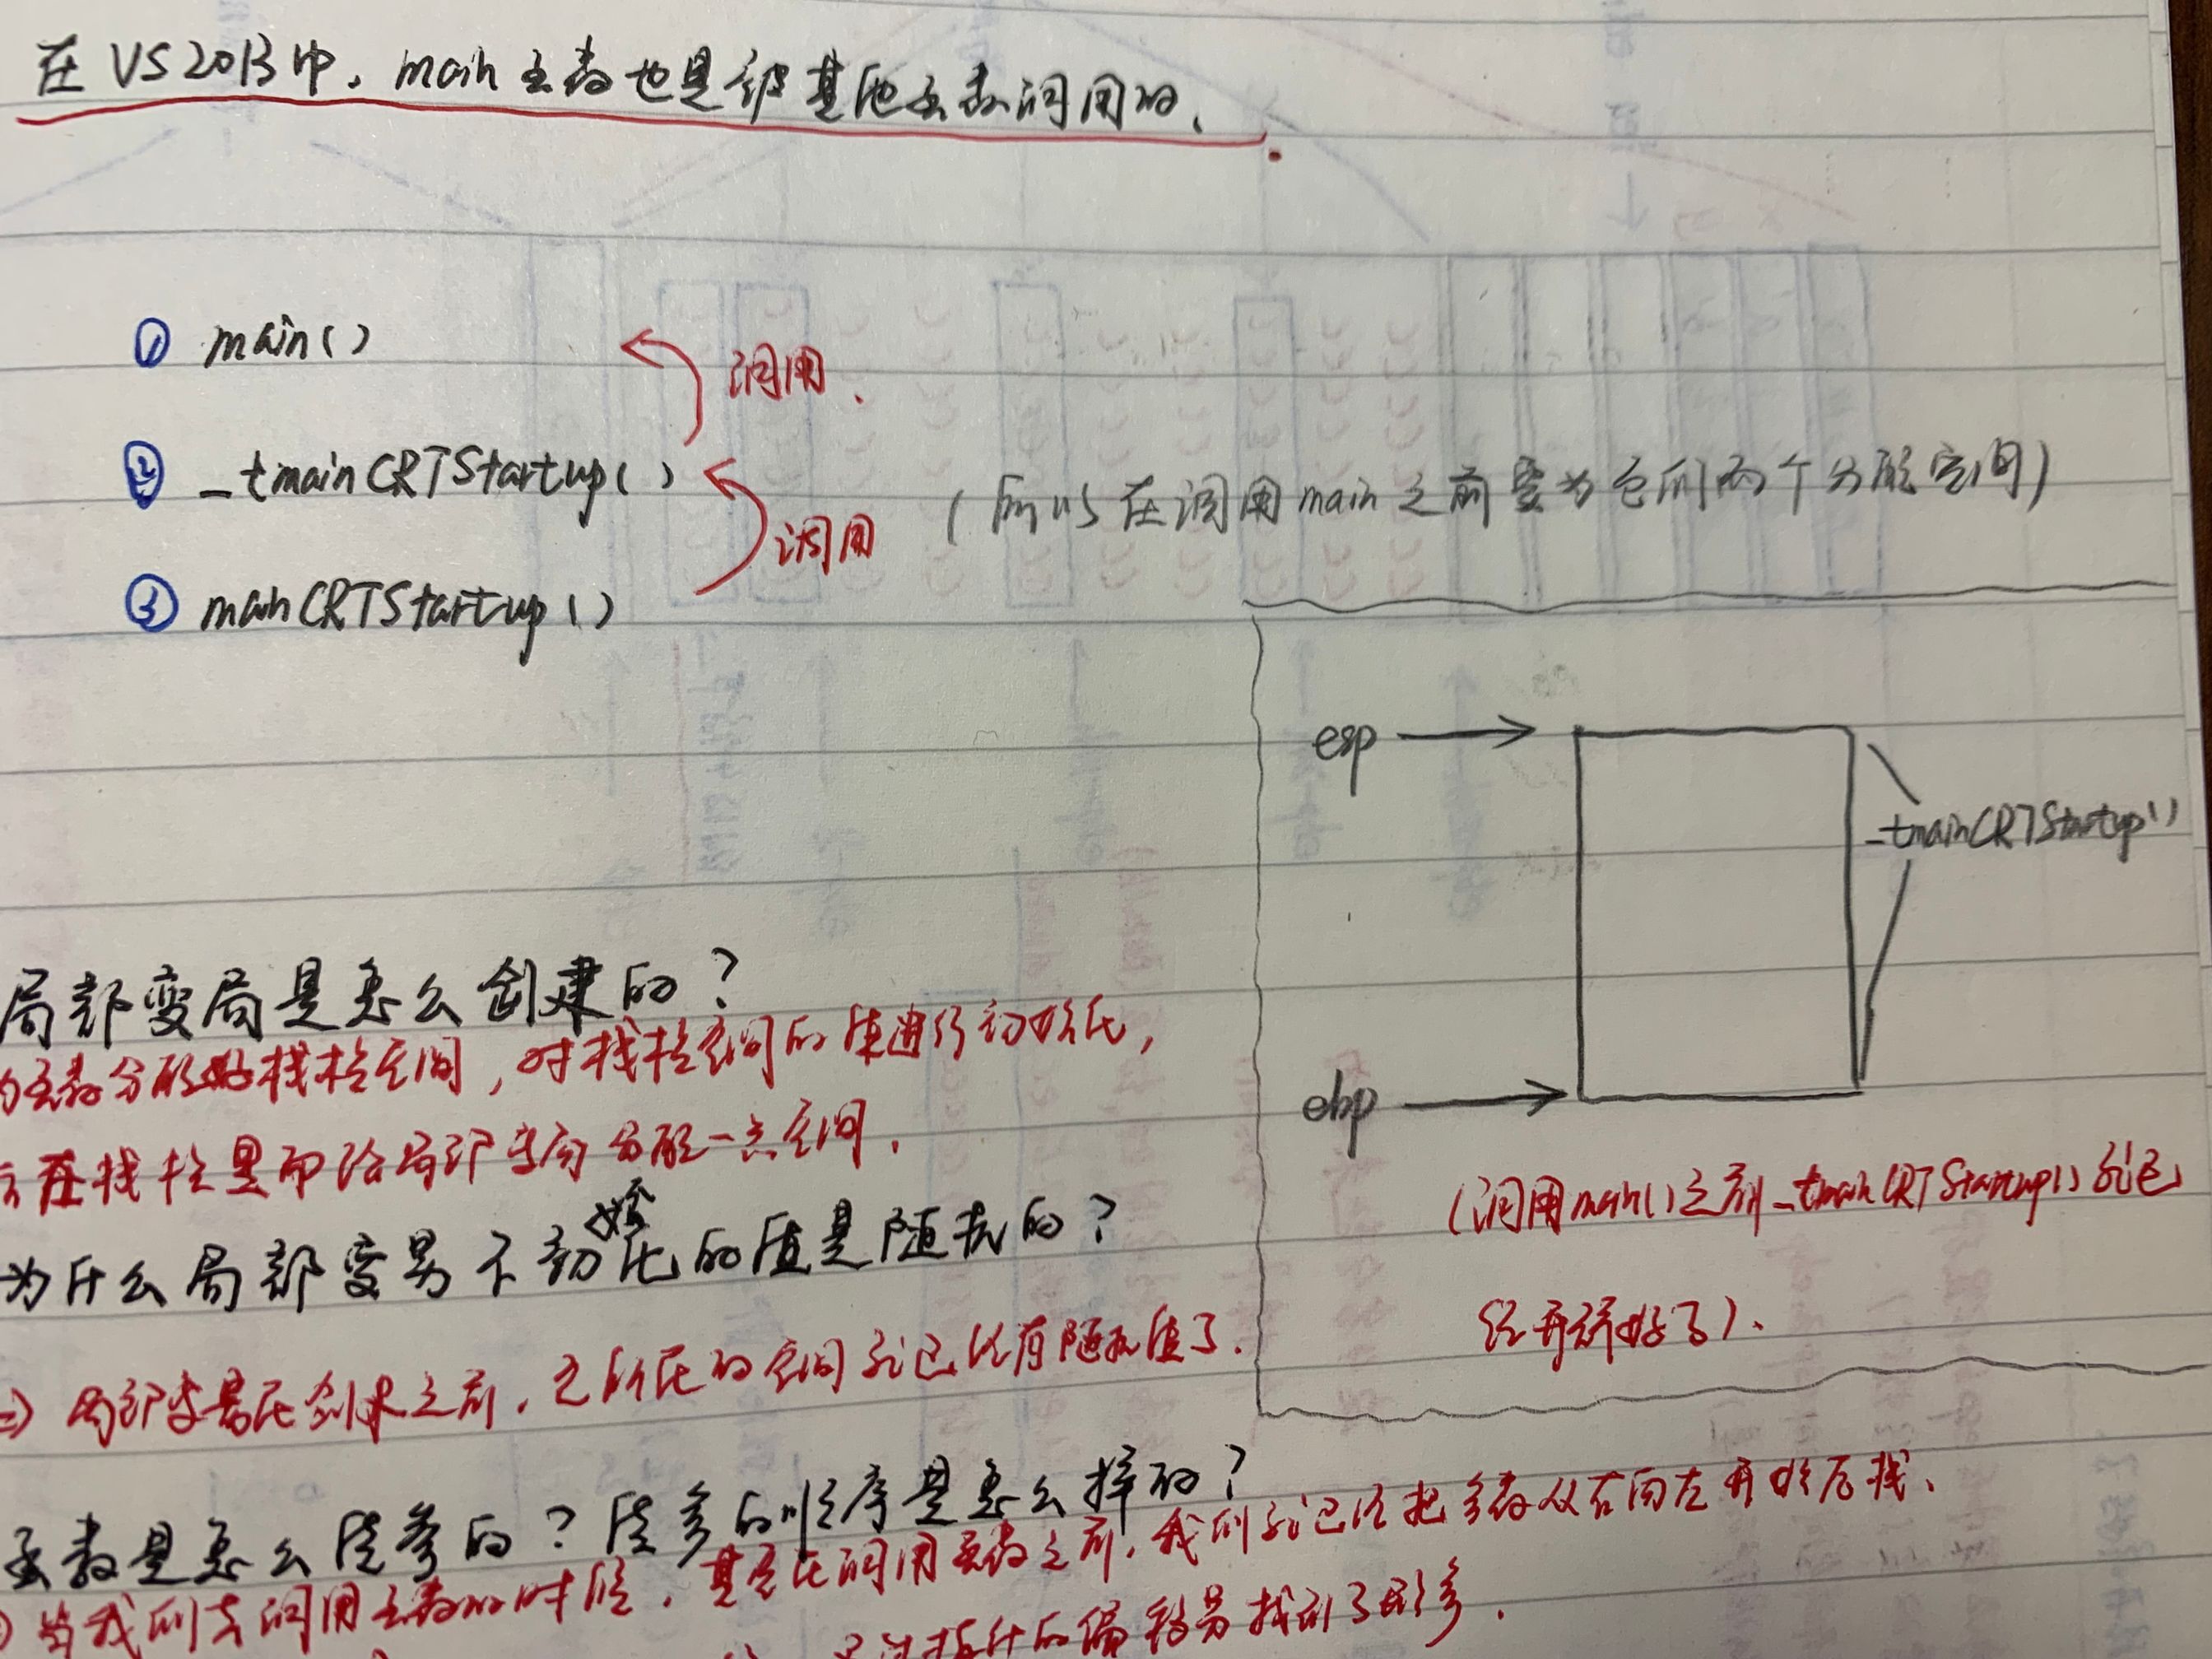 在VS2013中，main函数也是被其他函数调用的、
① main()
调用、
② _tmainCRTStartup()
(所以在调用main之前要为它们两个分配空间)
调用
③ mainCRTStartup()
esp
_tmainCRTStartup()
ebp
(调用main()之前_tmainCRTStartup()就已
经开辟好了)、
局部变局是怎么创建的？
为函数分配好栈桢空间，对栈桢空间的值进行初始化，
在栈桢里面给局部变局分配一点空间.
为什么局部变量不初始化的值是随机的？
=) 局部变量在创建之前，它所在的空间就已经有随机值了.
函数是怎么传参的？传参的顺序是怎么样的？
当我们去调用函数的时候，其实在调用函数之前，我们就已经把参数从右向左开始压栈、
通过指针的偏移量找到了形参.